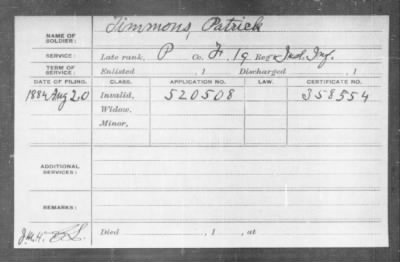 Timmons, Patrick
NAME OF SOLDIER:
SERVICE: Late rank, P Co. F. 19 Reg't Ind. Inf.
TERM OF SERVICE: Enlisted , 1 Discharged , 1
DATE OF FILING. CLASS. APPLICATION NO. LAW. CERTIFICATE NO.
1884 Aug 20 Invalid, 520508 358554
Widow,
Minor,
ADDITIONAL SERVICES:
REMARKS:
J.M.H.
Died , 1 , at